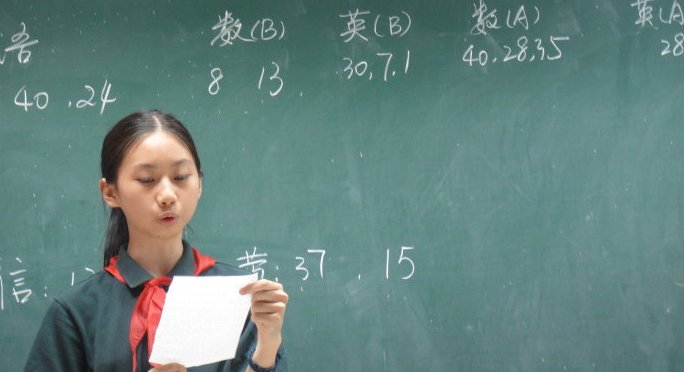 语 数(B) 英(B) 数(A) 英(A
40.24 8 13. 30.7.1 40.28.35 28
信: 英:37.15